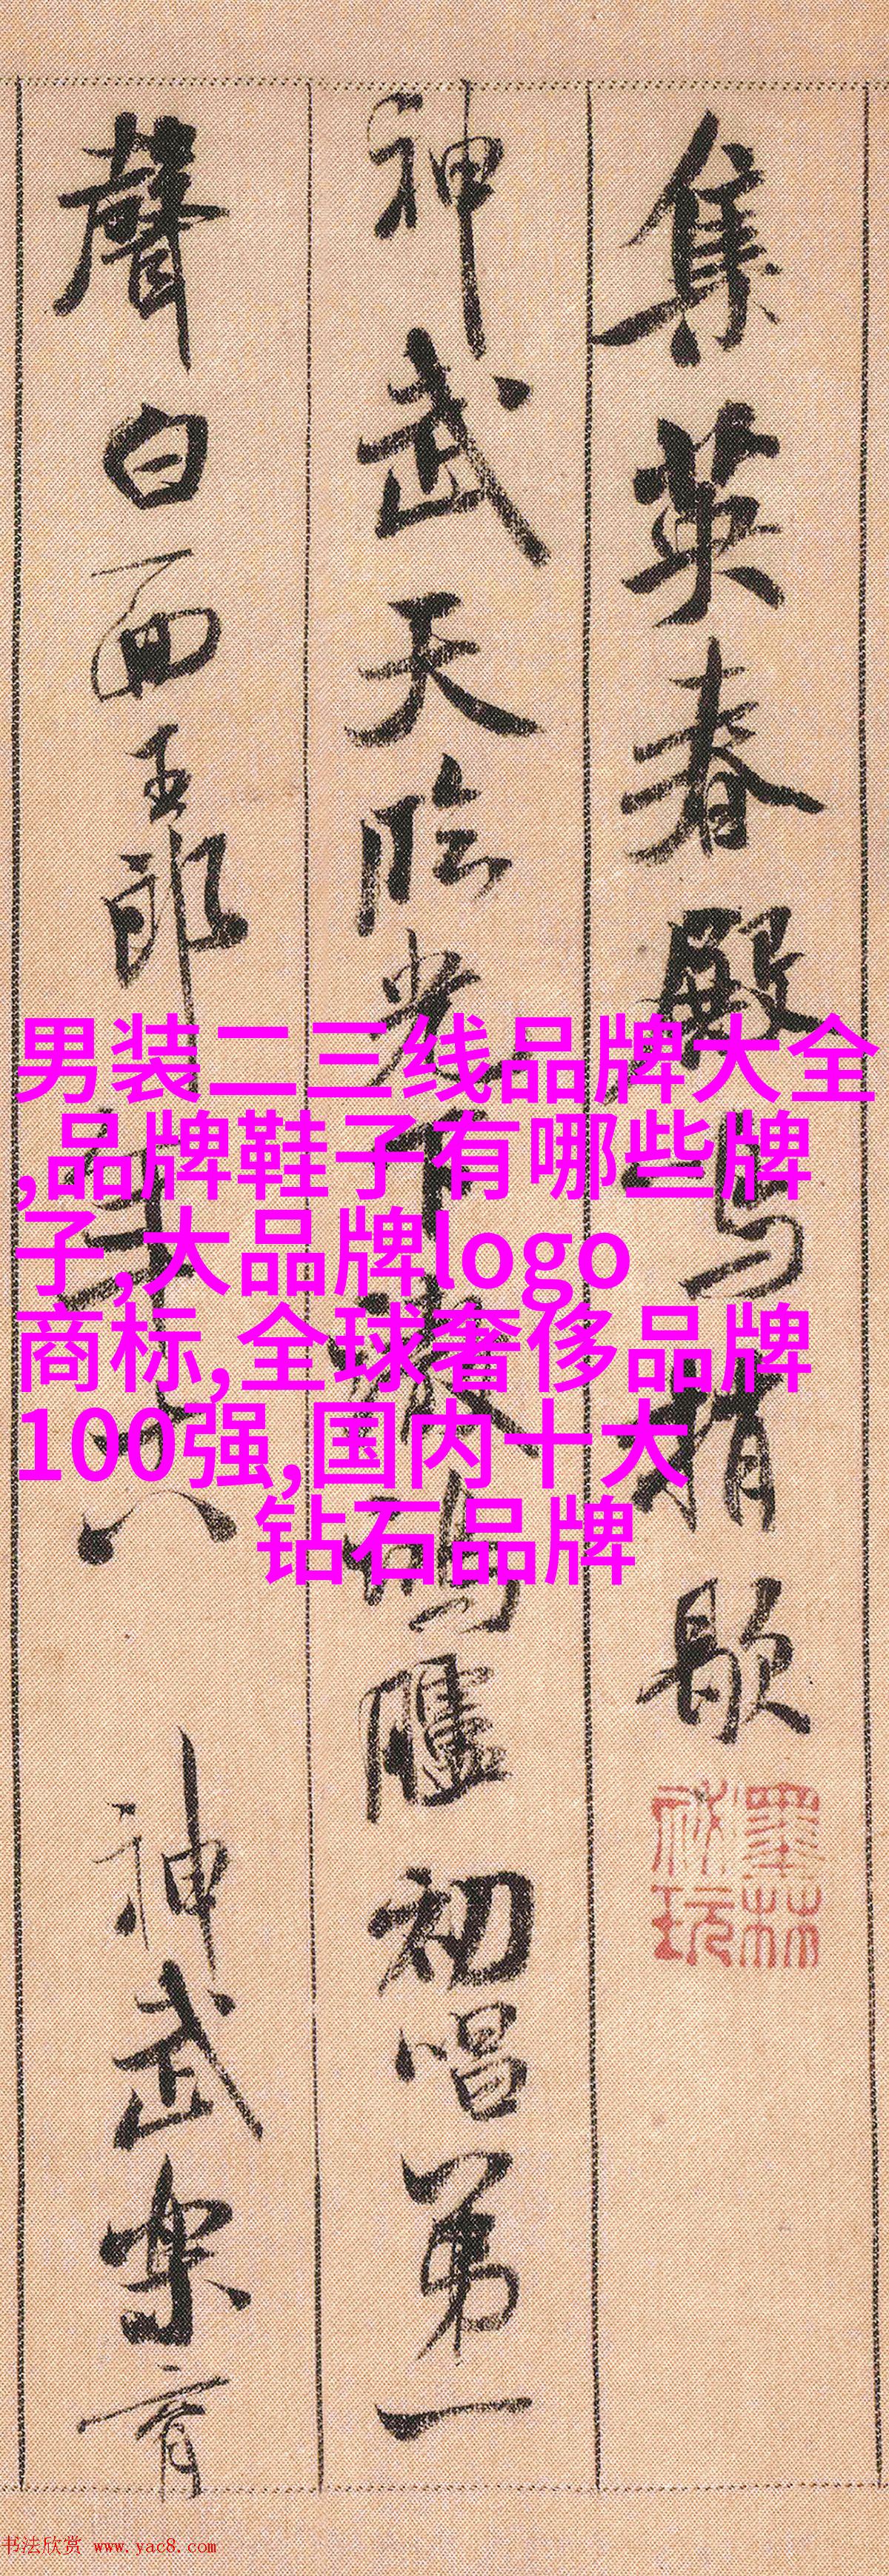 集英春殿鸣捎歇
神武天临光下澈鸿胪初唱第一
聲白面王郎年十八神武樂育
墨林祕玩
男装二三线品牌大全
,品牌鞋子有哪些牌
子,大品牌logo
商标,全球奢侈品牌
100强,国内十大
钻石品牌
书法欣赏 www.yac8.com